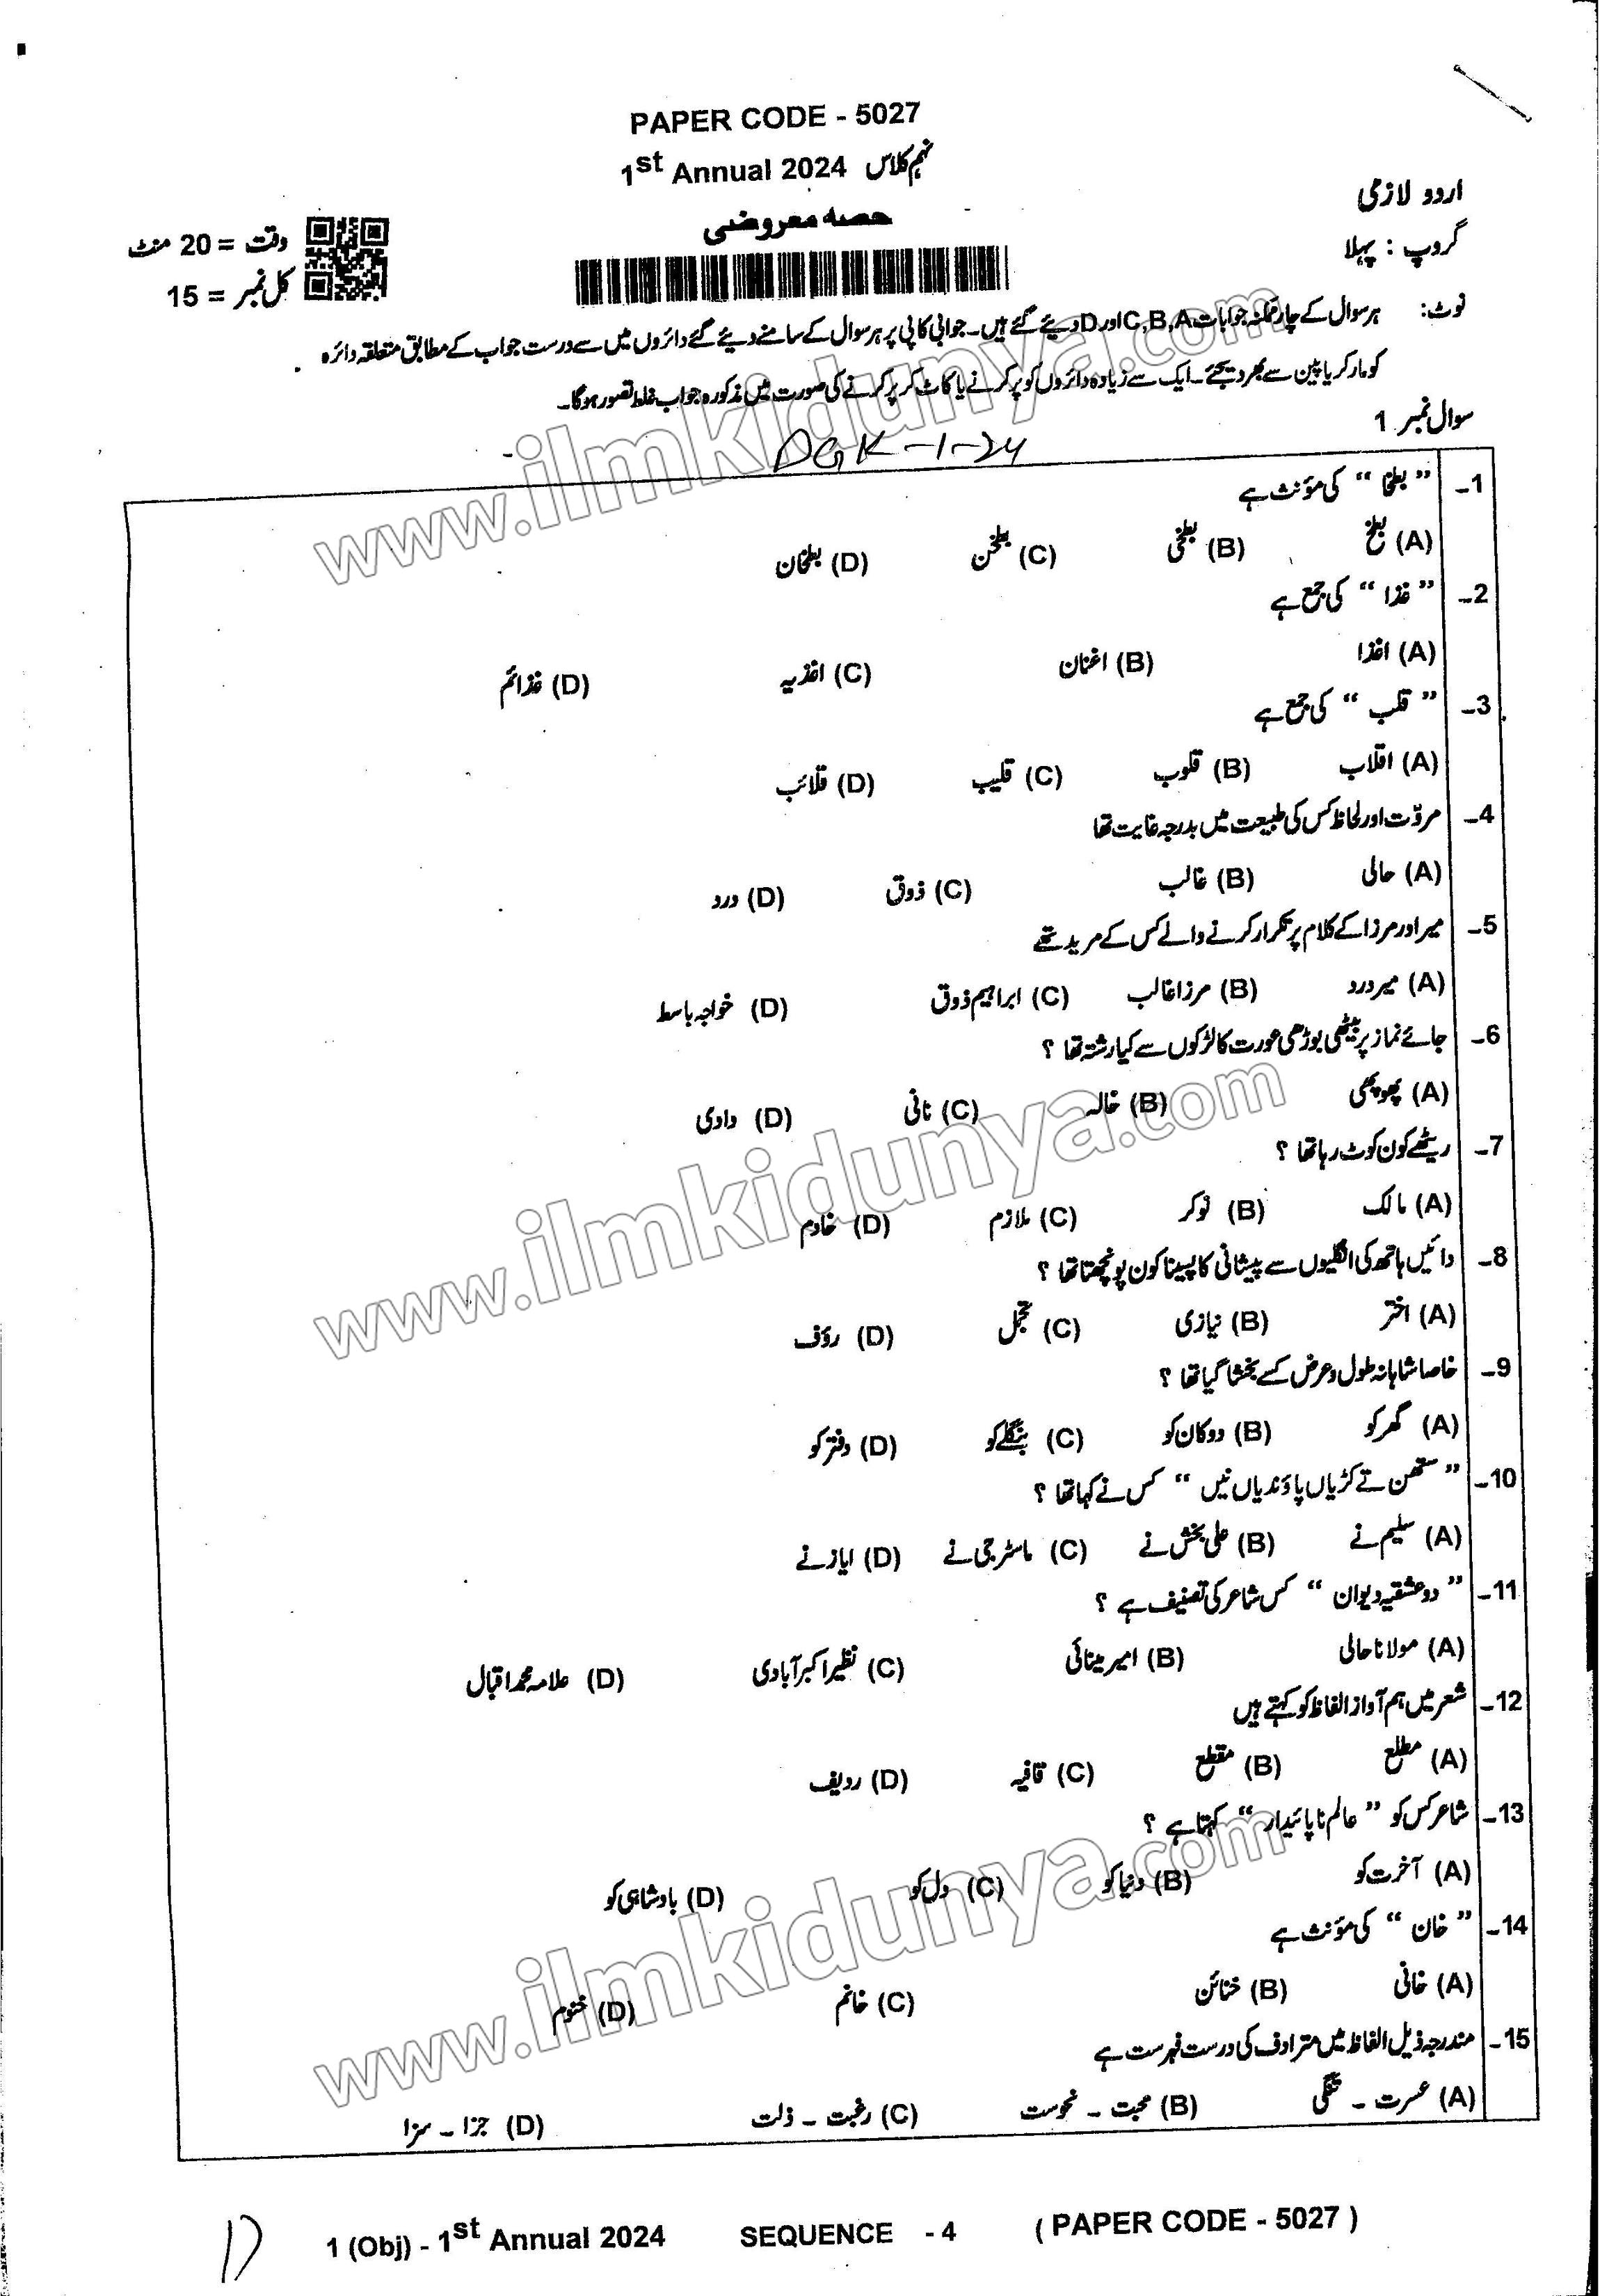 PAPER CODE - 5027
1st Annual 2024 نہم کلاس
اردو لازمی
حصہ معروضی
گروپ : پہلا
وقت = 20 منٹ
کل نمبر = 15
نوٹ: ہر سوال کے چار ممکنہ جوابات C,B,A اور D دیئے گئے ہیں۔ جوابی کاپی پر ہر سوال کے سامنے دیئے گئے دائروں میں سے درست جواب کے مطابق متعلقہ دائرہ
کو مارکر یا پین سے بھر دیجئے۔ ایک سے زیادہ دائروں کو پُر کرنے یا کاٹ کر پُر کرنے کی صورت میں مذکورہ جواب غلط تصور ہوگا۔
سوال نمبر 1
DGK-1-24
1۔ " بطخا " کی مؤنث ہے
(A) بطخ (B) بطخی (C) بطخن (D) بطخان
2۔ " غذا " کی جمع ہے
(A) اغذا (B) اغنان (C) اغذیہ (D) غذائم
3۔ " قلب " کی جمع ہے
(A) اقلاب (B) قلوب (C) قلیب (D) قلائب
4۔ مروّت اور لحاظ کس کی طبیعت میں بدرجہ غایت تھا
(A) حالی (B) غالب (C) ذوق (D) درد
5۔ میر اور مرزا کے کلام پر تکرار کرنے والے کس کے مرید تھے
(A) میر درد (B) مرزا غالب (C) ابراہیم ذوق (D) خواجہ باسط
6۔ جائے نماز پر بیٹھی بوڑھی عورت کا لڑکوں سے کیا رشتہ تھا ؟
(A) پھوپھی (B) خالہ (C) نانی (D) دادی
7۔ ریٹھے کون کوٹ رہا تھا ؟
(A) مالک (B) نوکر (C) ملازم (D) خادم
8۔ دائیں ہاتھ کی انگلیوں سے پیشانی کا پسینا کون پونچھتا تھا ؟
(A) اختر (B) نیازی (C) تجمل (D) رؤف
9۔ خاصا شاہانہ طول و عرض کسے بخشا گیا تھا ؟
(A) گھر کو (B) دوکان کو (C) بنگلے کو (D) دفتر کو
10۔ " ستھن تے کڑیاں پاؤندیاں نیں " کس نے کہا تھا ؟
(A) سلیم نے (B) علی بخش نے (C) ماسٹر جی نے (D) ایاز نے
11۔ " دو عشقیہ دیوان " کس شاعر کی تصنیف ہے ؟
(A) مولانا حالی (B) امیر مینائی (C) نظیر اکبر آبادی (D) علامہ محمد اقبال
12۔ شعر میں ہم آواز الفاظ کو کہتے ہیں
(A) مطلع (B) مقطع (C) قافیہ (D) ردیف
13۔ شاعر کس کو " عالم ناپائیدار " کہتا ہے ؟
(A) آخرت کو (B) دنیا کو (C) دل کو (D) بادشاہی کو
14۔ " خان " کی مؤنث ہے
(A) خانی (B) خنائن (C) خانم (D) خنوم
15۔ مندرجہ ذیل الفاظ میں مترادف کی درست فہرست ہے
(A) عسرت ۔ تنگی (B) محبت ۔ نحوست (C) رغبت ۔ ذلت (D) جزا ۔ سزا
1 (Obj) - 1st Annual 2024 SEQUENCE - 4 ( PAPER CODE - 5027 )
www.ilmkidunya.com
www.ilmkidunya.com
www.ilmkidunya.com